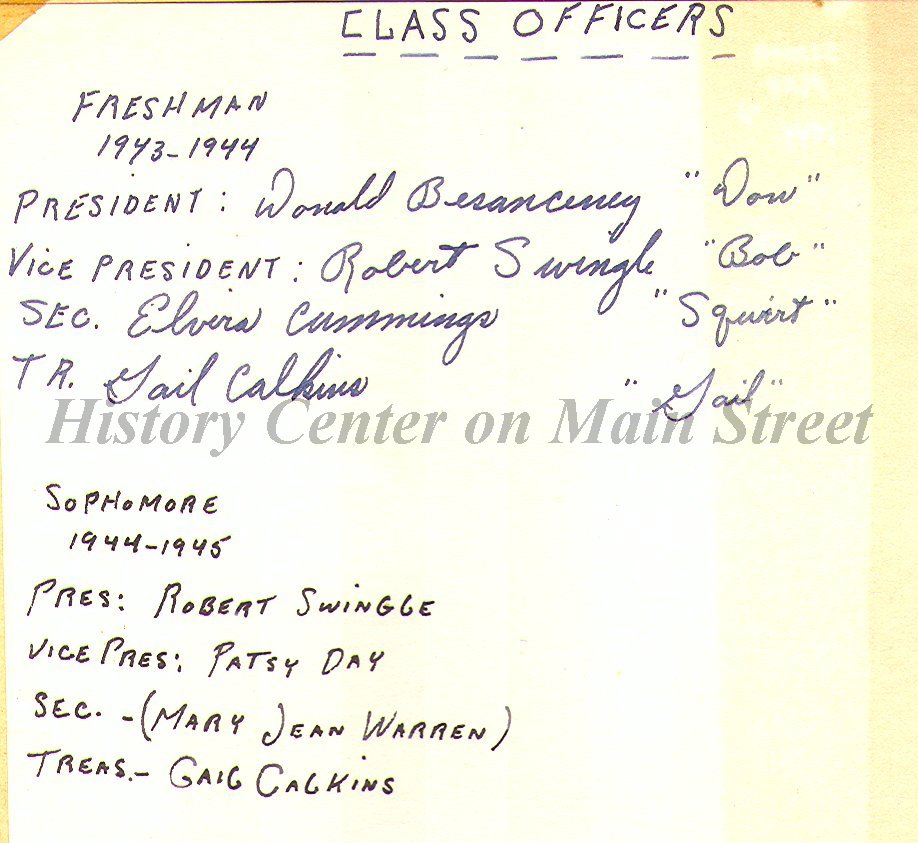 CLASS OFFICERS
FRESHMAN
1943-1944
PRESIDENT: Donald Besanceney "Don"
VICE PRESIDENT: Robert Swingle "Bob"
SEC. Elvira Cummings "Squirt"
TR. Gail Calkins "Gail"
History Center on Main Street
SOPHOMORE
1944-1945
PRES: ROBERT SWINGLE
VICE PRES: PATSY DAY
SEC. -(MARY JEAN WARREN)
TREAS.- GAIL CALKINS